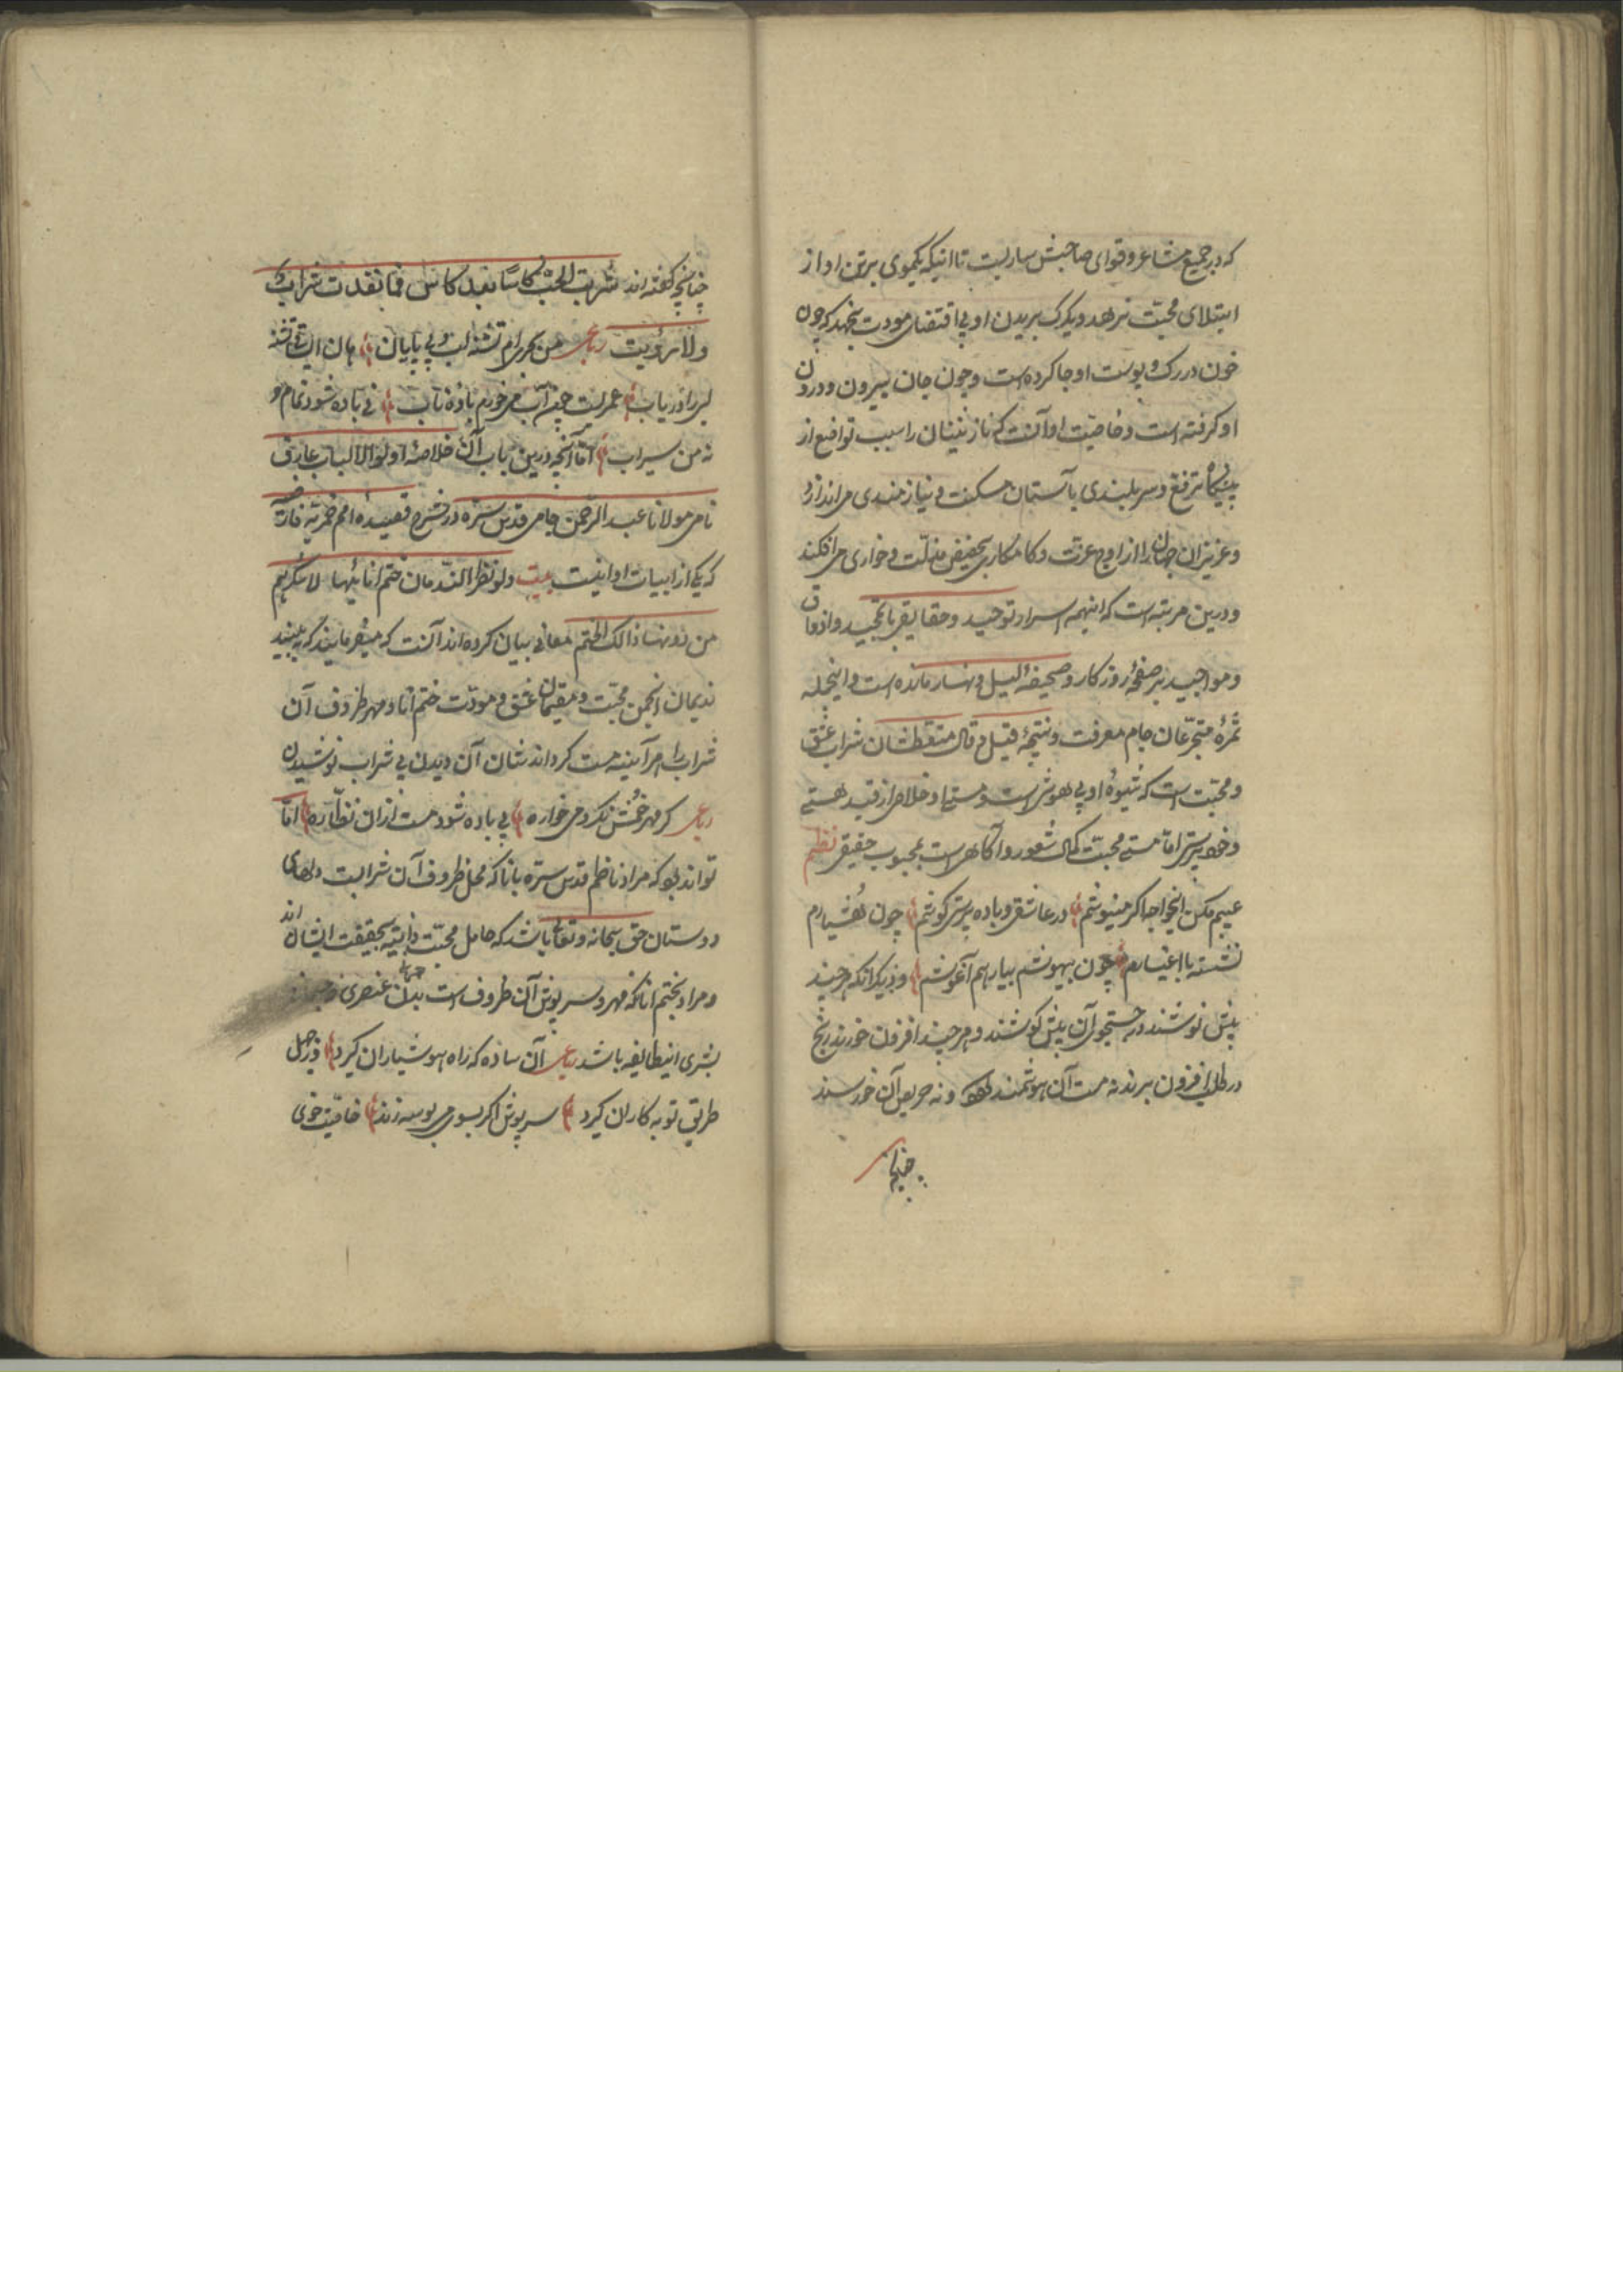 که در جمیع مشاعر و قوای صاحبش ساریست تا اینکه یکموی بر تن او از
ابتلای محبت نرهد و یکرک بر بدن او بی اقتضای مودت نجهد که چون
خون در رک و پوست او جا کرده است و چون جان بیرون و درون
او کرفته است و خاصیت او آنست که نازنینان را سبب تواضع از
پیشکاه ترفع و سربلندی بآستان مسکنت و نیازمندی می اندازد
و عزیزان جهان را از اوج عزت و کامکاری بحضیض مذلت و خواری می افکند
و درین مرتبه است که اینهمه اسرار توحید و حقایق با تمجید و اذواق
و مواجید بر صفحهٔ روزکار و صحیفهٔ الیل و نهار مانده است و اینجمله
ثمرهٔ متجرعان جام معرفت و نتیجهٔ قیل و قال متعطشان شراب عشق
و محبت است که شیوهٔ او بی هوشی است و مستی او خلاص از قید هستی
و خود پرستی اما مستی محبت کمال شعور و آکاهی است بمحبوب حقیقی نظم
عیبم مکن ایخواجه اکر مینوشم در عاشقی و باده پرستی کوشم چون هشیارم
نشسته با اغیارم چون بیهوشم بیار هم آغوشم و دیکر انکه هر چند
بیش نوشند در جستجوی آن بیش کوشند و هر چند افزون خورند رنج
در طلب افزون برند نه مست آن هوشمند شود و نه حریص آن خورسند
چنانچه
چنانچه کفته اند شربت الحب کاسا بعد کاس فما نفدت شراب
ولا رویت رباعی من بحری ام تشنه لب و بی پایان هان ای تشنه
لبی را دریاب عمریست چون آب میخورم بادهٔ ناب نی باده شود تمام و
نه من سیراب اما آنچه درین باب آن خلاصهٔ اولوالالباب عارف
نامی مولانا عبد الرحمن جامی قدس سره در شرح قصیدهٔ میم خمریه فارضیه
که یکی از ابیات او اینست بیت ولو نظر الندمان ختم انائها لاسکرهم
من دونها ذالک الختم معانی بیان کرده اند آنست که میفرمایند که به بینید
ندیمان انجمن محبت و مقیمان عشق و مودت ختم انا و مهر ظروف آن
شراب را هر آینه مست کرداند شان آن دیدن بی شراب نوشیدن
رباعی کر مهر خمش نکرد می خواره بی باده شود مست از ان نظاره اما
تواند بود که مراد ناظم قدس سره بانا که محل ظروف آن شرابست دلهای
دوستان حق سبحانه و تعالی باشد که حامل محبت ذاتیه بحقیقت ایشان اند
و مراد بختم انا که مهر و سرپوش آن ظروف است بدن عنصری
بشری اینطایفه باشد رباعی آن ساده که راه هوشیاران کیرد
طریق توبه کاران کیرد سرپوش اکر بسوی می بوسه زند خاصیت خوی